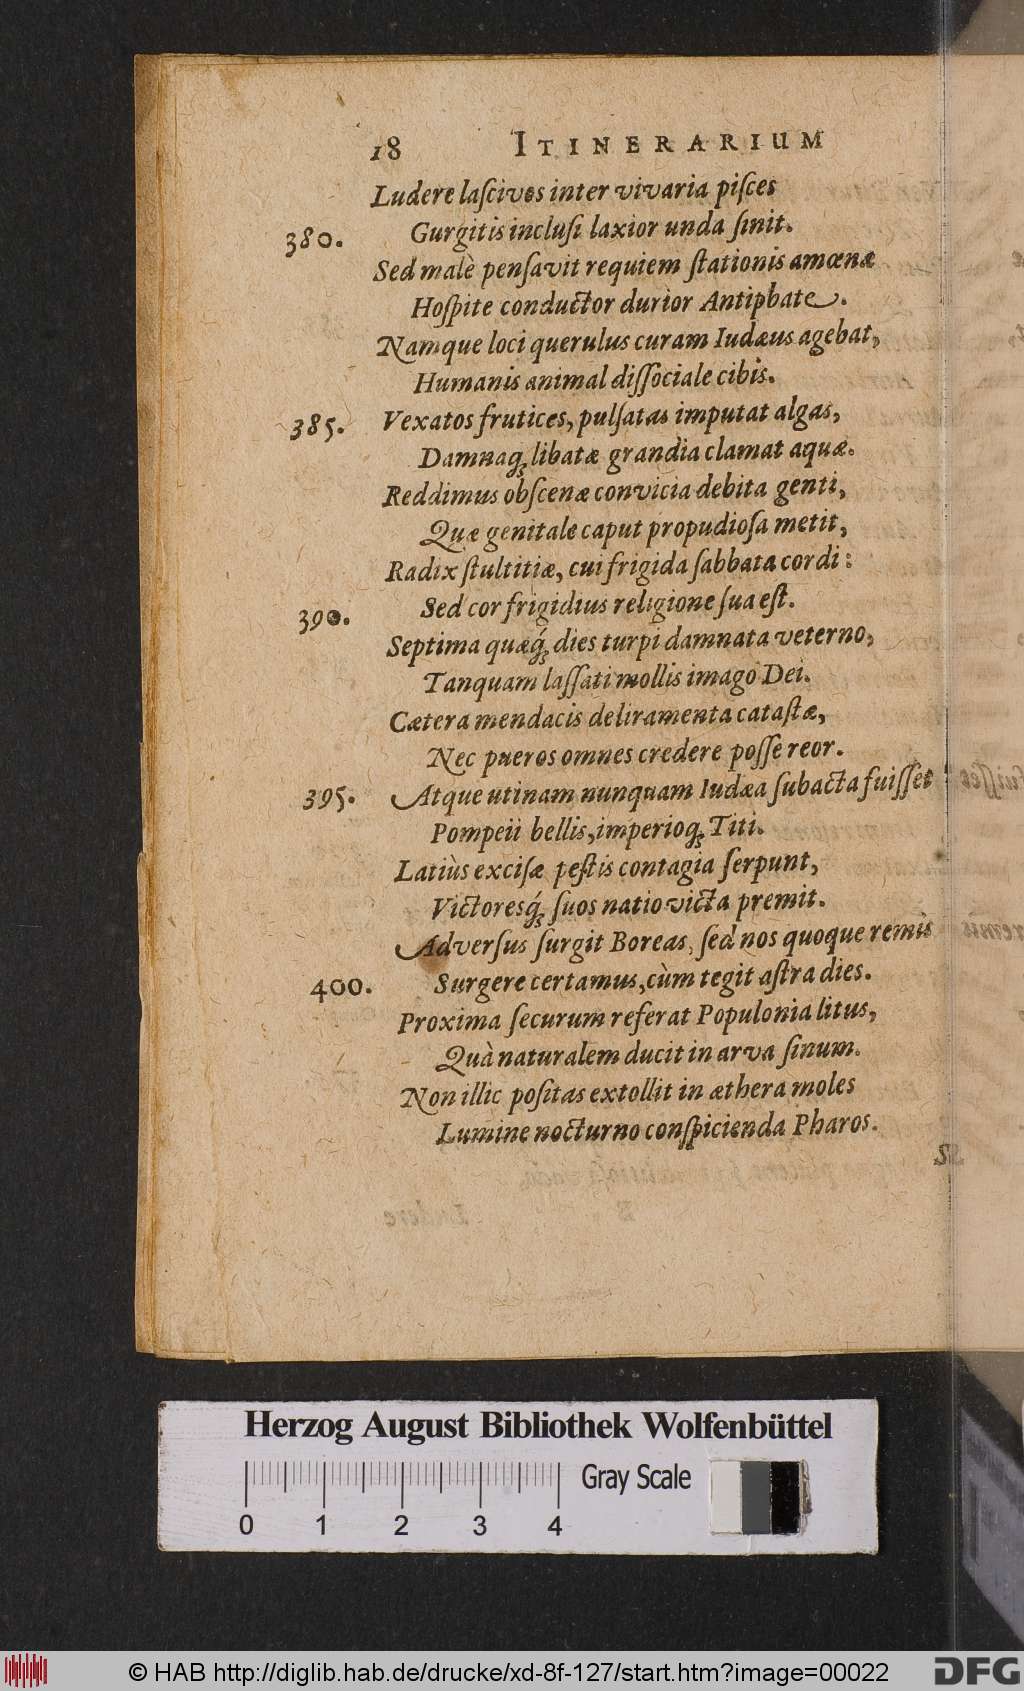 18 ITINERARIUM
Ludere laſcivos inter vivaria piſces
380. Gurgitis incluſi laxior unda ſinit.
Sed malè penſavit requiem ſtationis amœnæ
Hoſpite conductor durior Antiphate.
Namque loci querulus curam Iudæus agebat,
Humanis animal diſſociale cibis.
385. Vexatos frutices, pulſatas imputat algas,
Damnaq́; libatæ grandia clamat aquæ.
Reddimus obſcenæ convicia debita genti,
Quæ genitale caput propudioſa metit,
Radix ſtultitiæ, cui frigida ſabbata cordi:
390. Sed cor frigidius religione ſua eſt.
Septima quæq́; dies turpi damnata veterno,
Tanquam laſſati mollis imago Dei.
Cætera mendacis deliramenta cataſtæ,
Nec pueros omnes credere poſſe reor.
395. Atque utinam nunquam Iudæa ſubacta fuiſſet
Pompeii bellis, imperioq; Titi.
Latiùs exciſæ peſtis contagia ſerpunt,
Victoresq́; ſuos natio victa premit.
Adverſus ſurgit Boreas, ſed nos quoque remis
400. Surgere certamus, cùm tegit aſtra dies.
Proxima ſecurum referat Populonia litus,
Quà naturalem ducit in arva ſinum.
Non illic poſitas extollit in æthera moles
Lumine nocturno conſpicienda Pharos.
Herzog August Bibliothek Wolfenbüttel
Gray Scale
0 1 2 3 4
© HAB http://diglib.hab.de/drucke/xd-8f-127/start.htm?image=00022
DFG